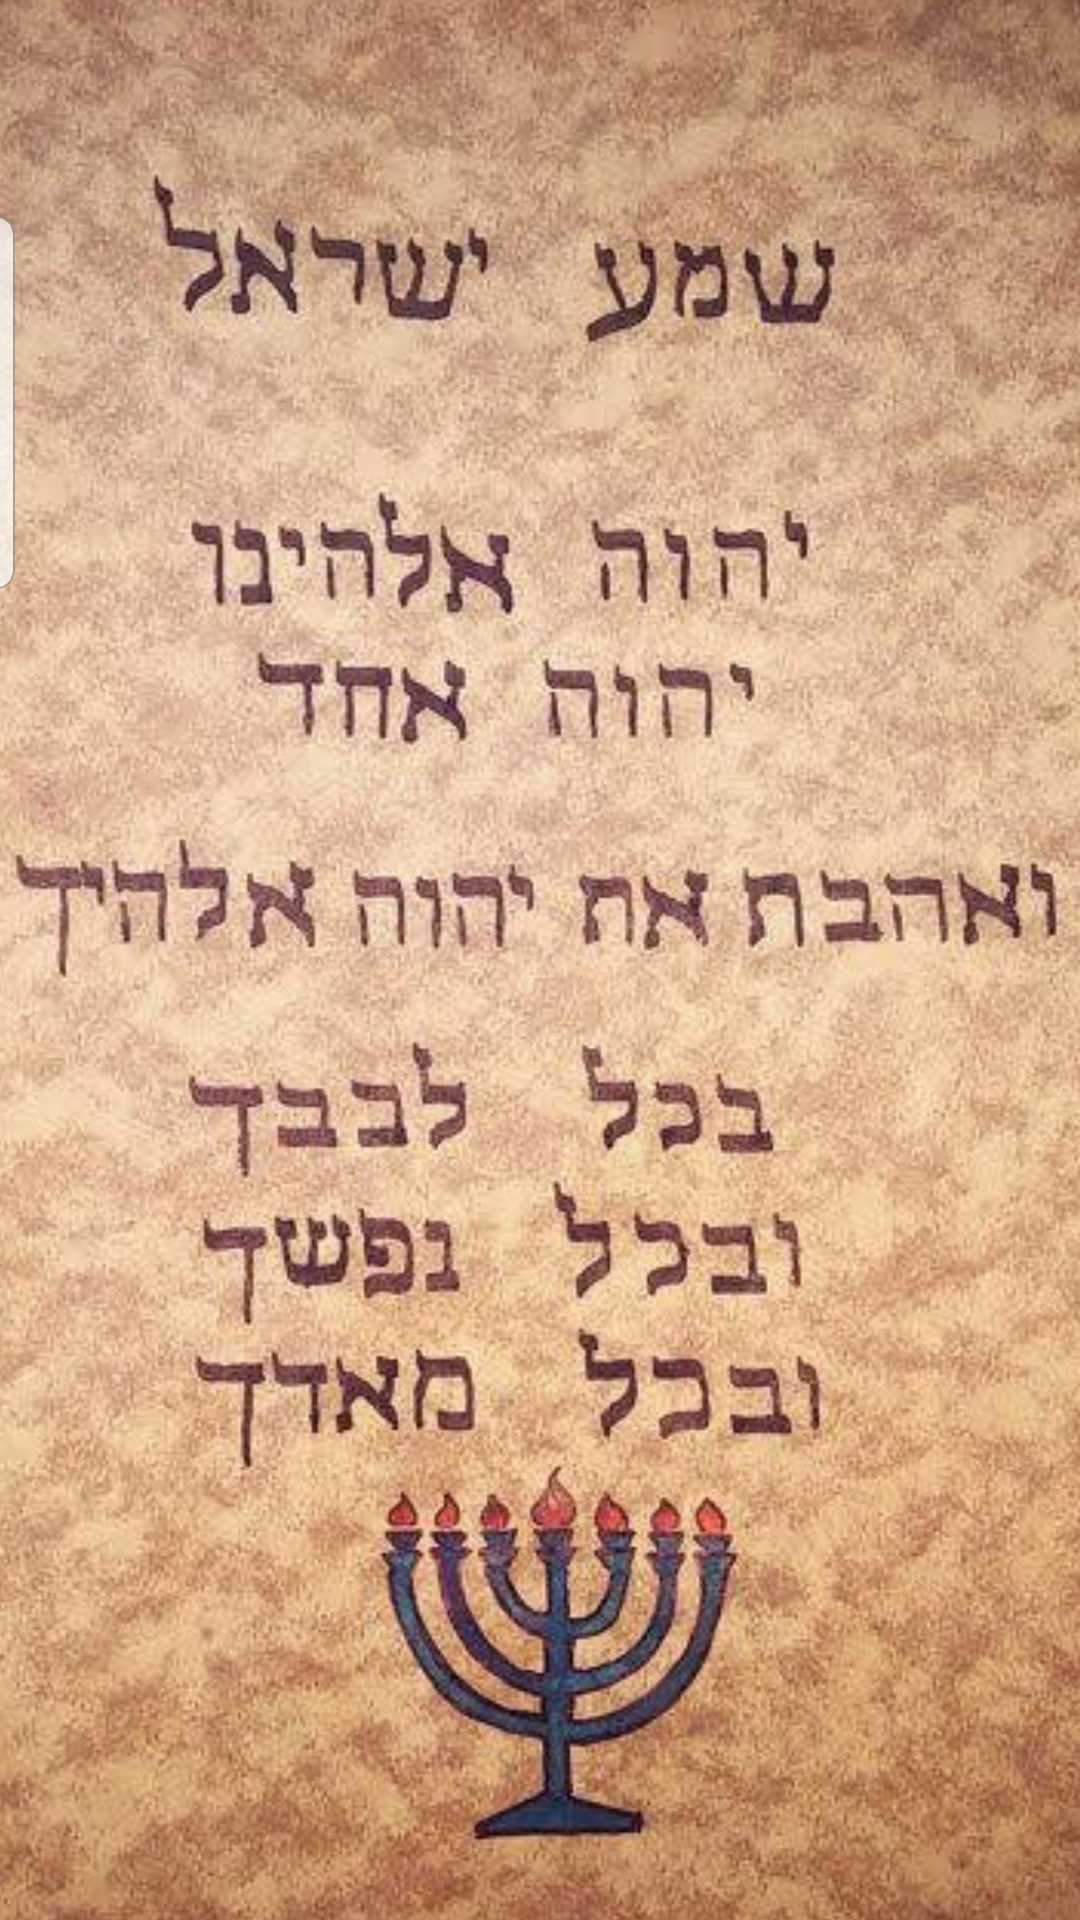 שמע ישראל
יהוה אלהינו
יהוה אחד
ואהבת את יהוה אלהיך
בכל לבבך
ובכל נפשך
ובכל מאדך